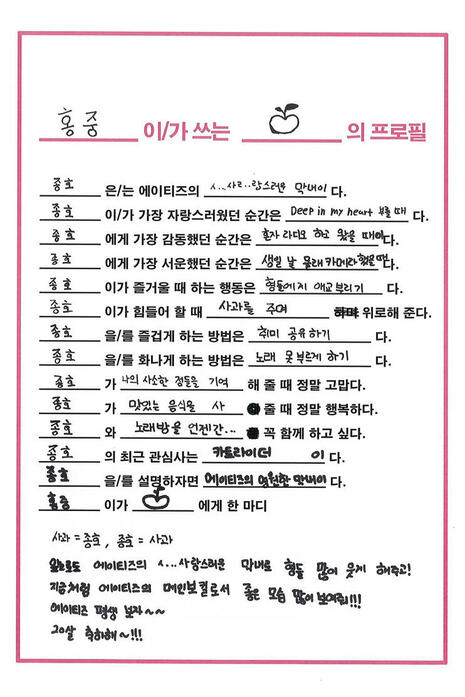 홍중 이/가 쓰는 의 프로필
종호 은/는 에이티즈의 ㅅ...사르..랑스러운 막내이 다.
종호 이/가 가장 자랑스러웠던 순간은 Deep in my heart 부를 때 다.
종호 에게 가장 감동했던 순간은 혼자 라디오 하고 왔을 때이다.
종호 에게 가장 서운했던 순간은 생일 날 몰래카메라했을때다.
종호 이가 즐거울 때 하는 행동은 형들에게 애교부리기 다.
종호 이가 힘들어 할 때 사과를 주며 하며 위로해 준다.
종호 을/를 즐겁게 하는 방법은 취미 공유하기 다.
종호 을/를 화나게 하는 방법은 노래 못부르게 하기 다.
종호 가 나의 사소한 점들을 기억 해 줄 때 정말 고맙다.
종호 가 맛있는 음식을 사 줄 때 정말 행복하다.
종호 와 노래방을 언젠간... 꼭 함께 하고 싶다.
종호 의 최근 관심사는 카트라이더 이 다.
종호 을/를 설명하자면 에이티즈의 영원한 막내이 다.
홍중 이가 에게 한 마디
사과 = 종호, 종호 = 사과
앞으로도 에이티즈의 ㅅ...사랑스러운 막내로 형들 많이 웃게 해주고!
지금처럼 에이티즈의 메인보컬로서 좋은 모습 많이 보여줘!!!
에이티즈 평생 보자~~
20살 축하해~!!!